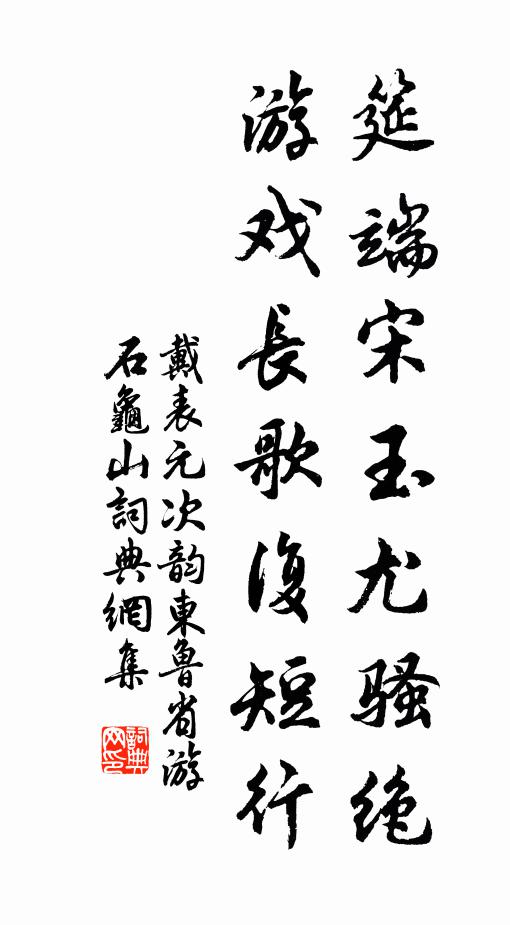 筵端宋玉尤骚绝
游戏長歌復短行
戴表元次韵東魯省游
石龜山詞典網集
詞典网印